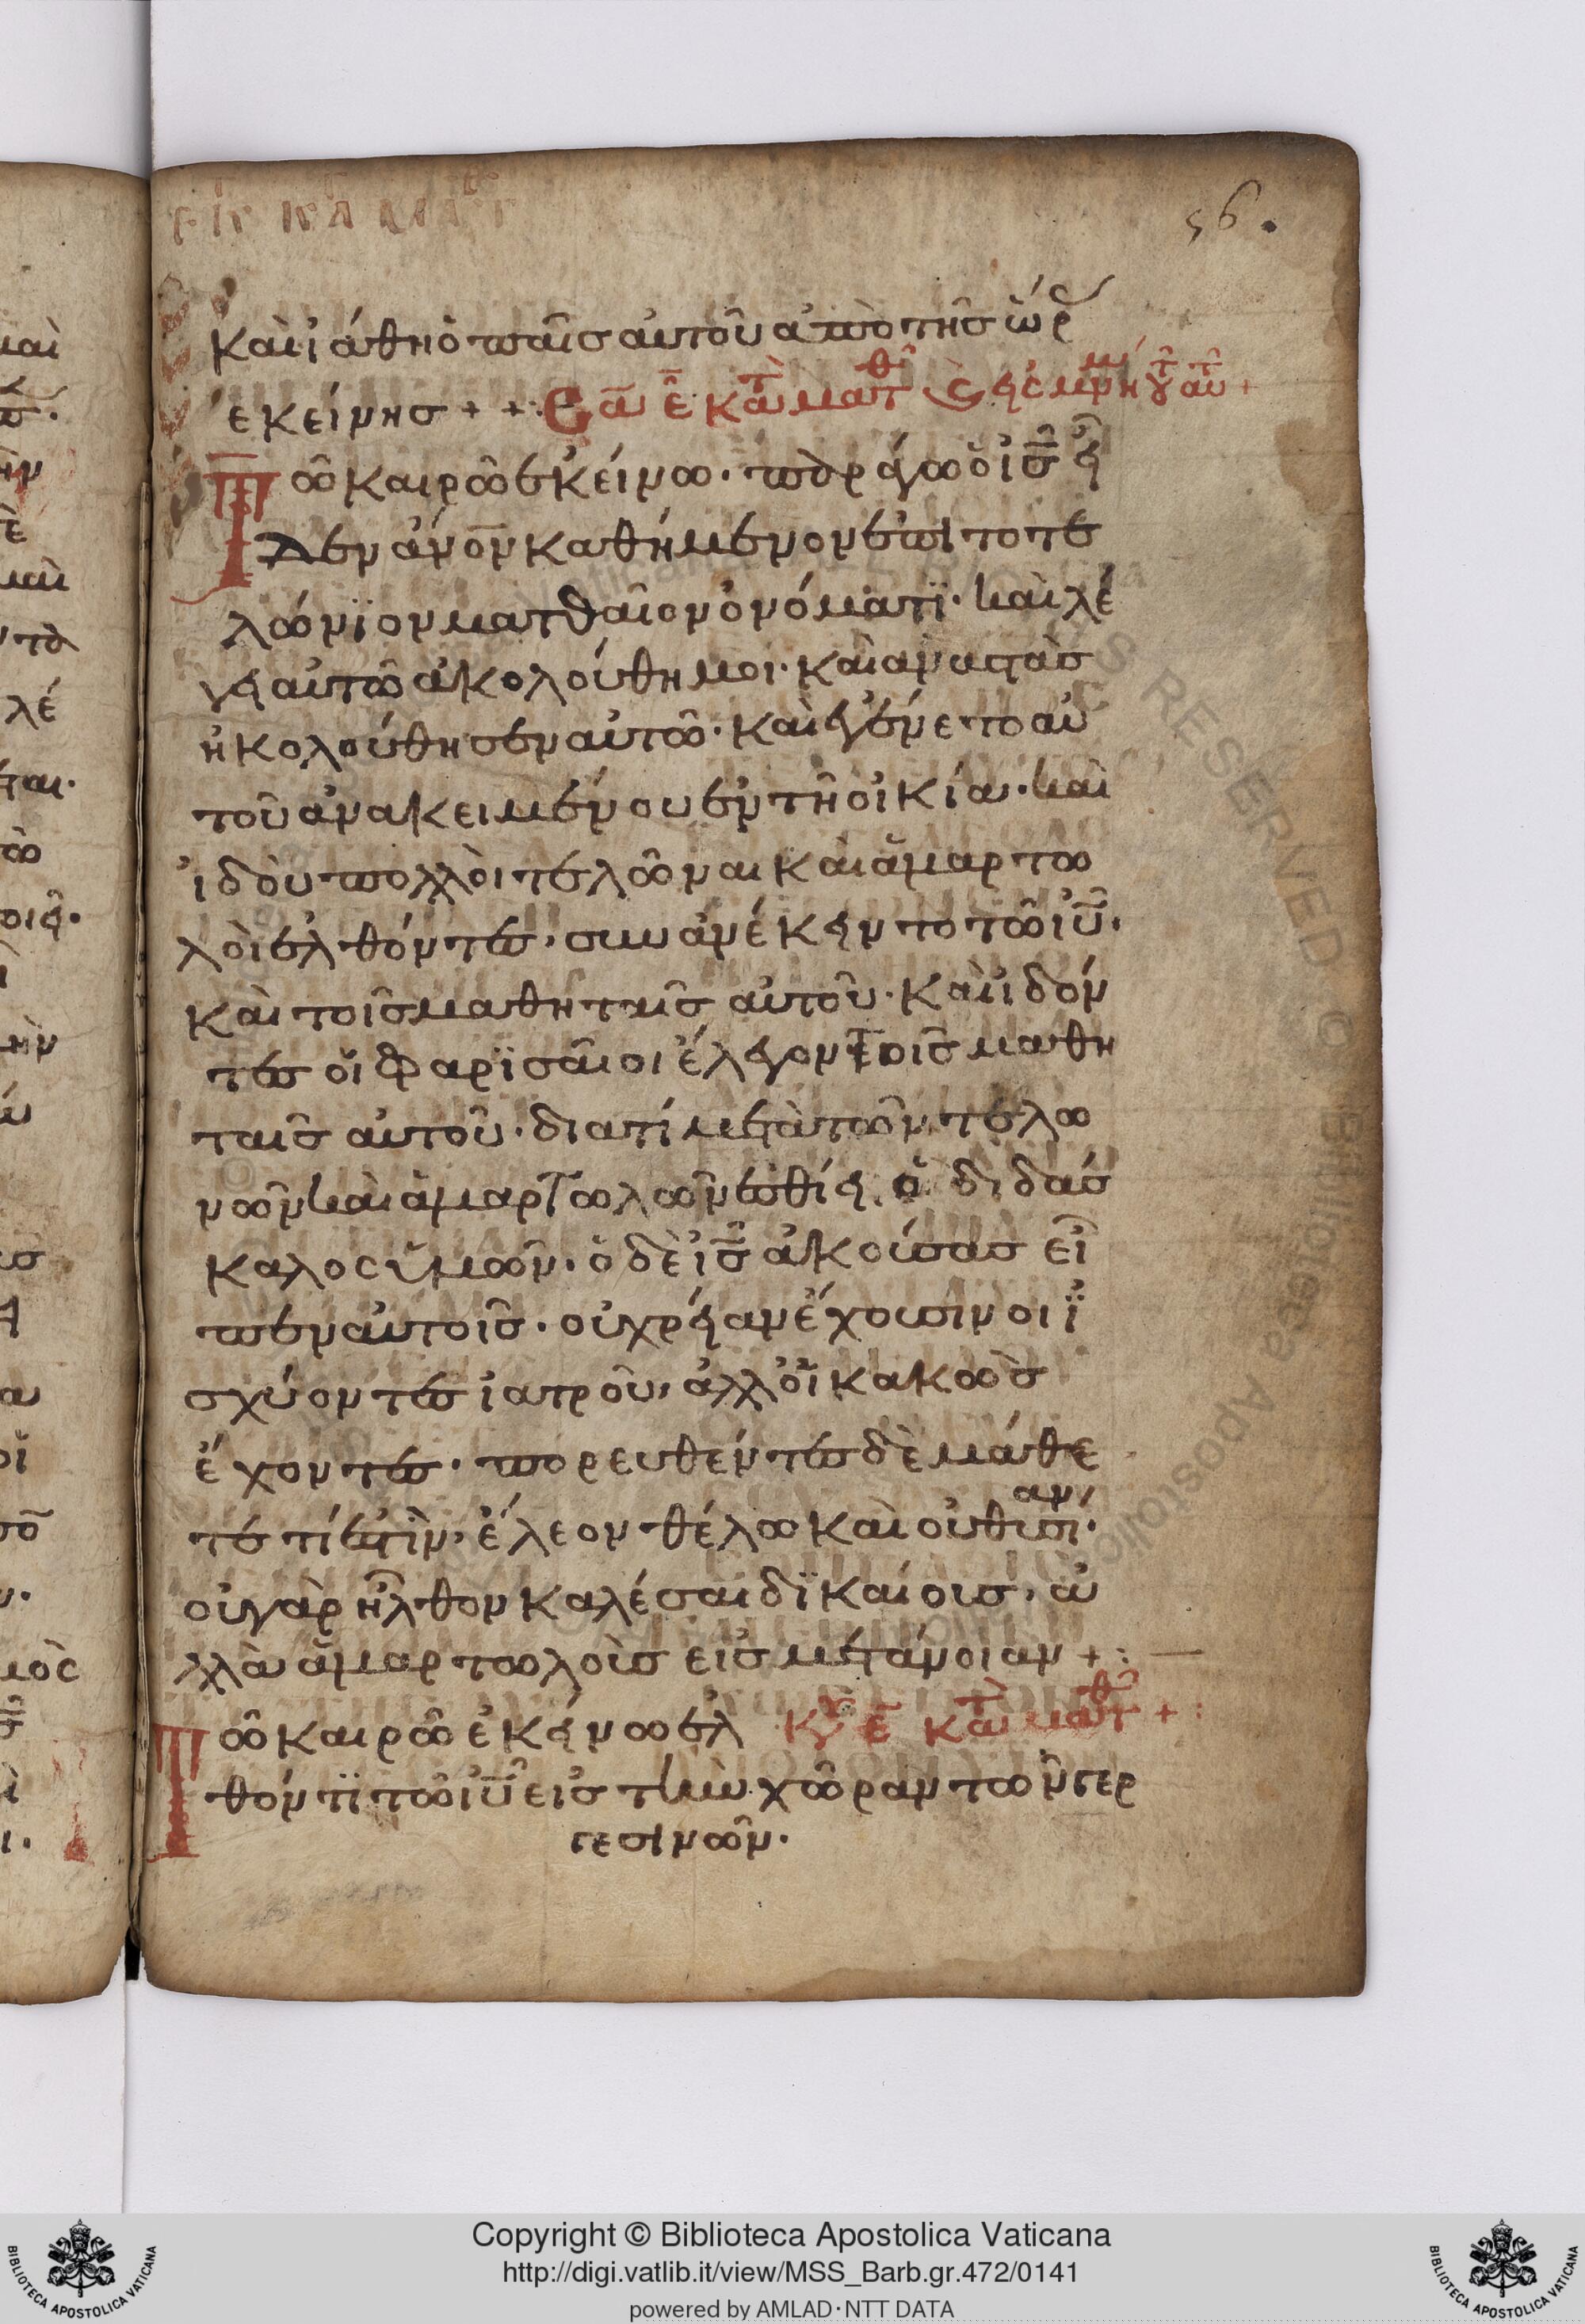 56.
καὶ ἰάθη ὁ παῖς αὐτοῦ ἀπὸ τῆς ὥρ
ἐκείνης + +
Τῶ καιρῶ ἐκείνω· παράγων ὁ ις εἶ
δεν ἄνον καθήμενον ἐπὶ τὸ τε
λώνϊον ματθαῖον ὀνόματϊ· καὶ λέ
γει αὐτῶ ἀκολούθη μοι· καὶ ἀναστὰς
ἠκολούθησεν αὐτῶ· καὶ ἐγένετο αὐ
τοῦ ἀνακειμένου ἐν τῆ οἰκία· καὶ
ἰδοὺ πολλοὶ τελῶναι καὶ ἁμαρτω
λοὶ ἐλθόντες, συνανέκειντο τῶ ιυ·
καὶ τοῖς μαθηταῖς αὐτοῦ· καὶ ἰδόν
τες οἱ φαρϊσαῖοι ἔλεγον τοῖς μαθη
ταῖς αὐτοῦ· διατί μετὰ τῶν τελω
νῶν καὶ ἁμαρτωλῶν ἐσθίει ὁ διδάσ
καλος ὑμῶν· ὁ δὲ ις ἀκούσας εἶ
πεν αὐτοῖς· οὐ χρείαν ἔχουσιν οἱ ϊ
σχύοντες ἰατροῦ, ἀλλ οἱ κακῶς
ἔχοντες· πορευθέντες δὲ μάθε
τε τί ἐστὶν, ἔλεον θέλω καὶ οὐ θυσίαν·
οὐ γὰρ ἦλθον καλέσαι δϊκαίους, ἀ
λλὰ ἁμαρτωλοὺς εἰς μετάνοιαν + :
Τῶ καιρῶ ἐκείνω ἐλ κυ ε κατὰ ματθ + :
θόντϊ τῶ ιυ εἰς τὴν χώραν τῶν γερ
γεσινῶν·
Copyright © Biblioteca Apostolica Vaticana
http://digi.vatlib.it/view/MSS_Barb.gr.472/0141
powered by AMLAD·NTT DATA